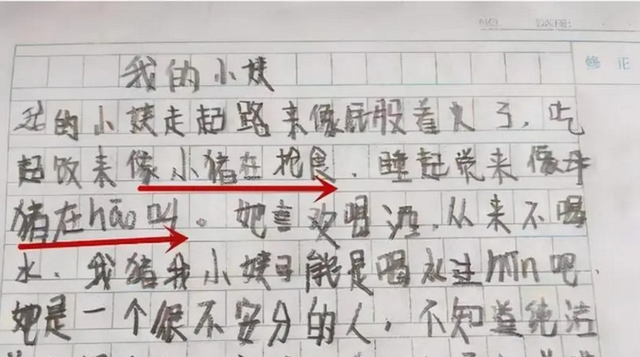 我的小姨
我的小姨走起路来像屁股着火了，吃
修正
起饭来像小猪在抢食，睡起觉来像母
猪在hāo叫。她喜欢喝酒，从来不喝
水，我猪我小姨可能是喝水过mǐn吧，
她是一个很不安分的人，不知道纯洁